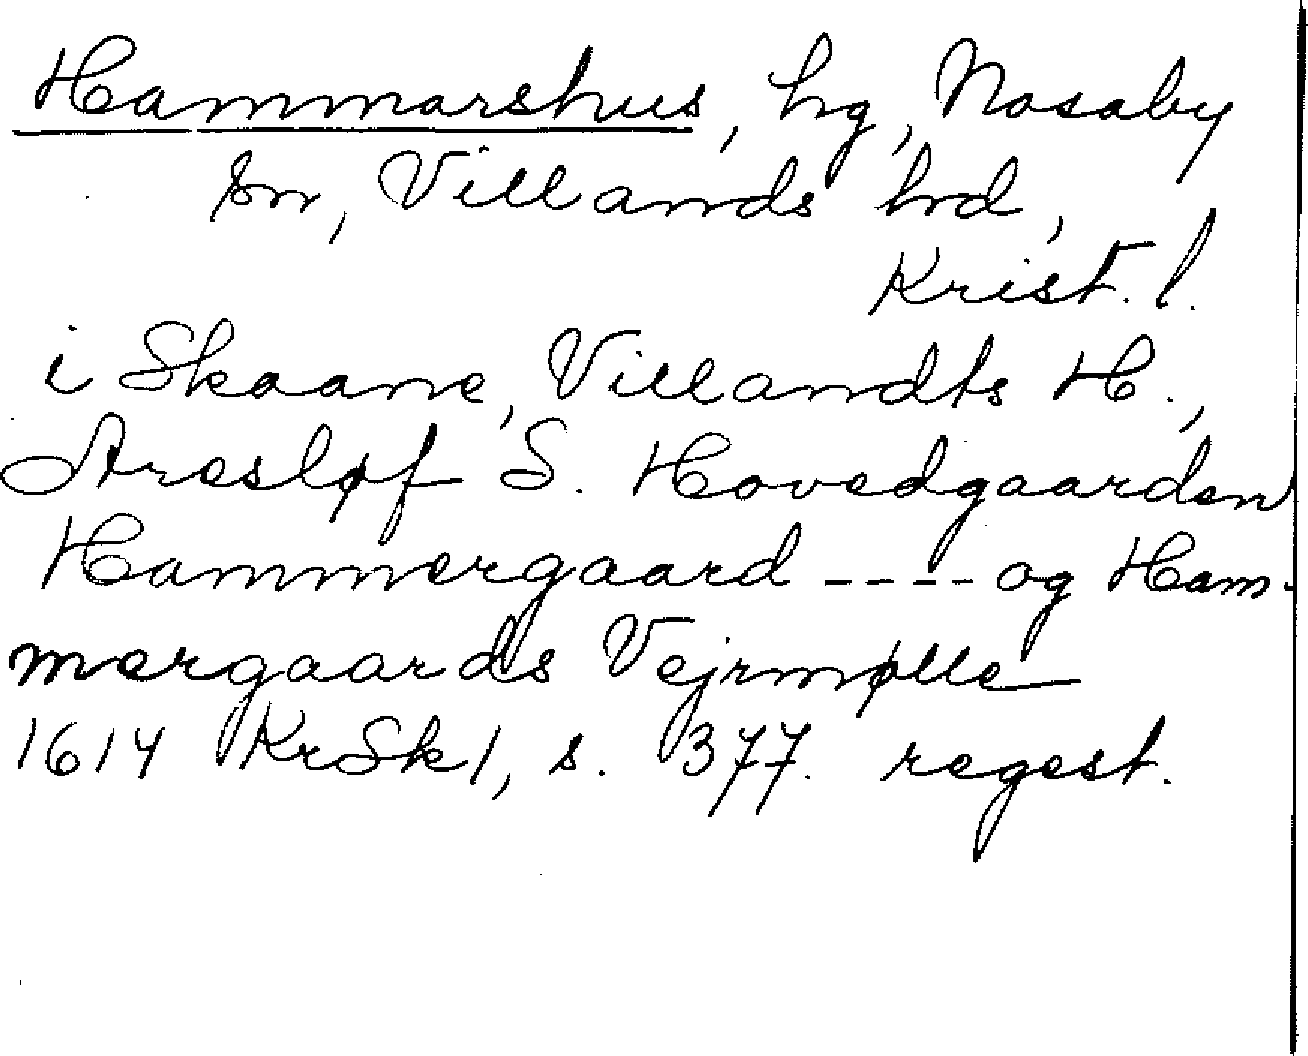 Hammarshus, hg, Nosaby
sn, Villands hrd,
Krist. l.
i Skaane, Villandts H.,
Aresløf S. Hovedgaarden
Hammergaard ---- og Ham-
mergaards Vejrmølle
1614 KrSk1, s. 377. regest.